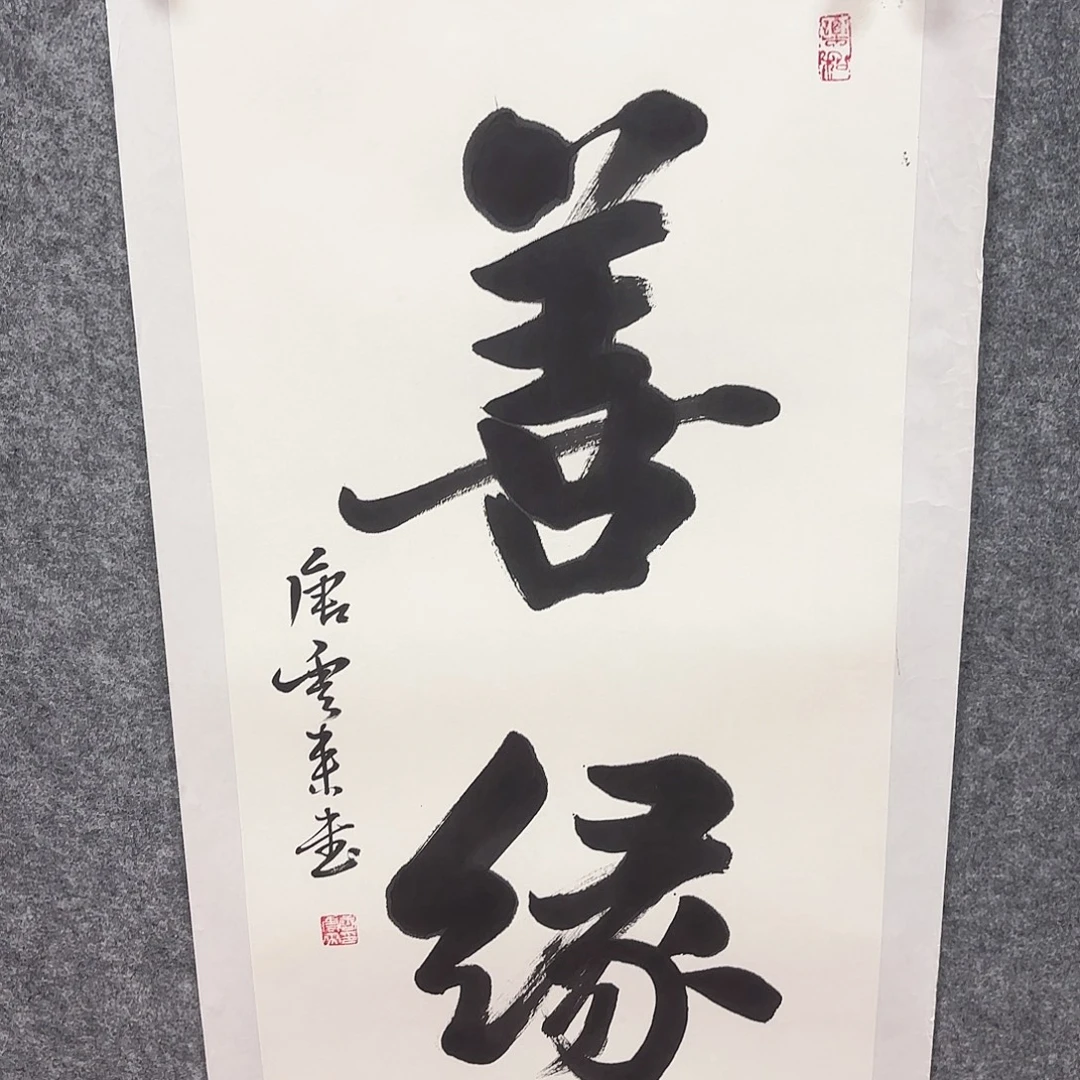 善缘
唐云来书